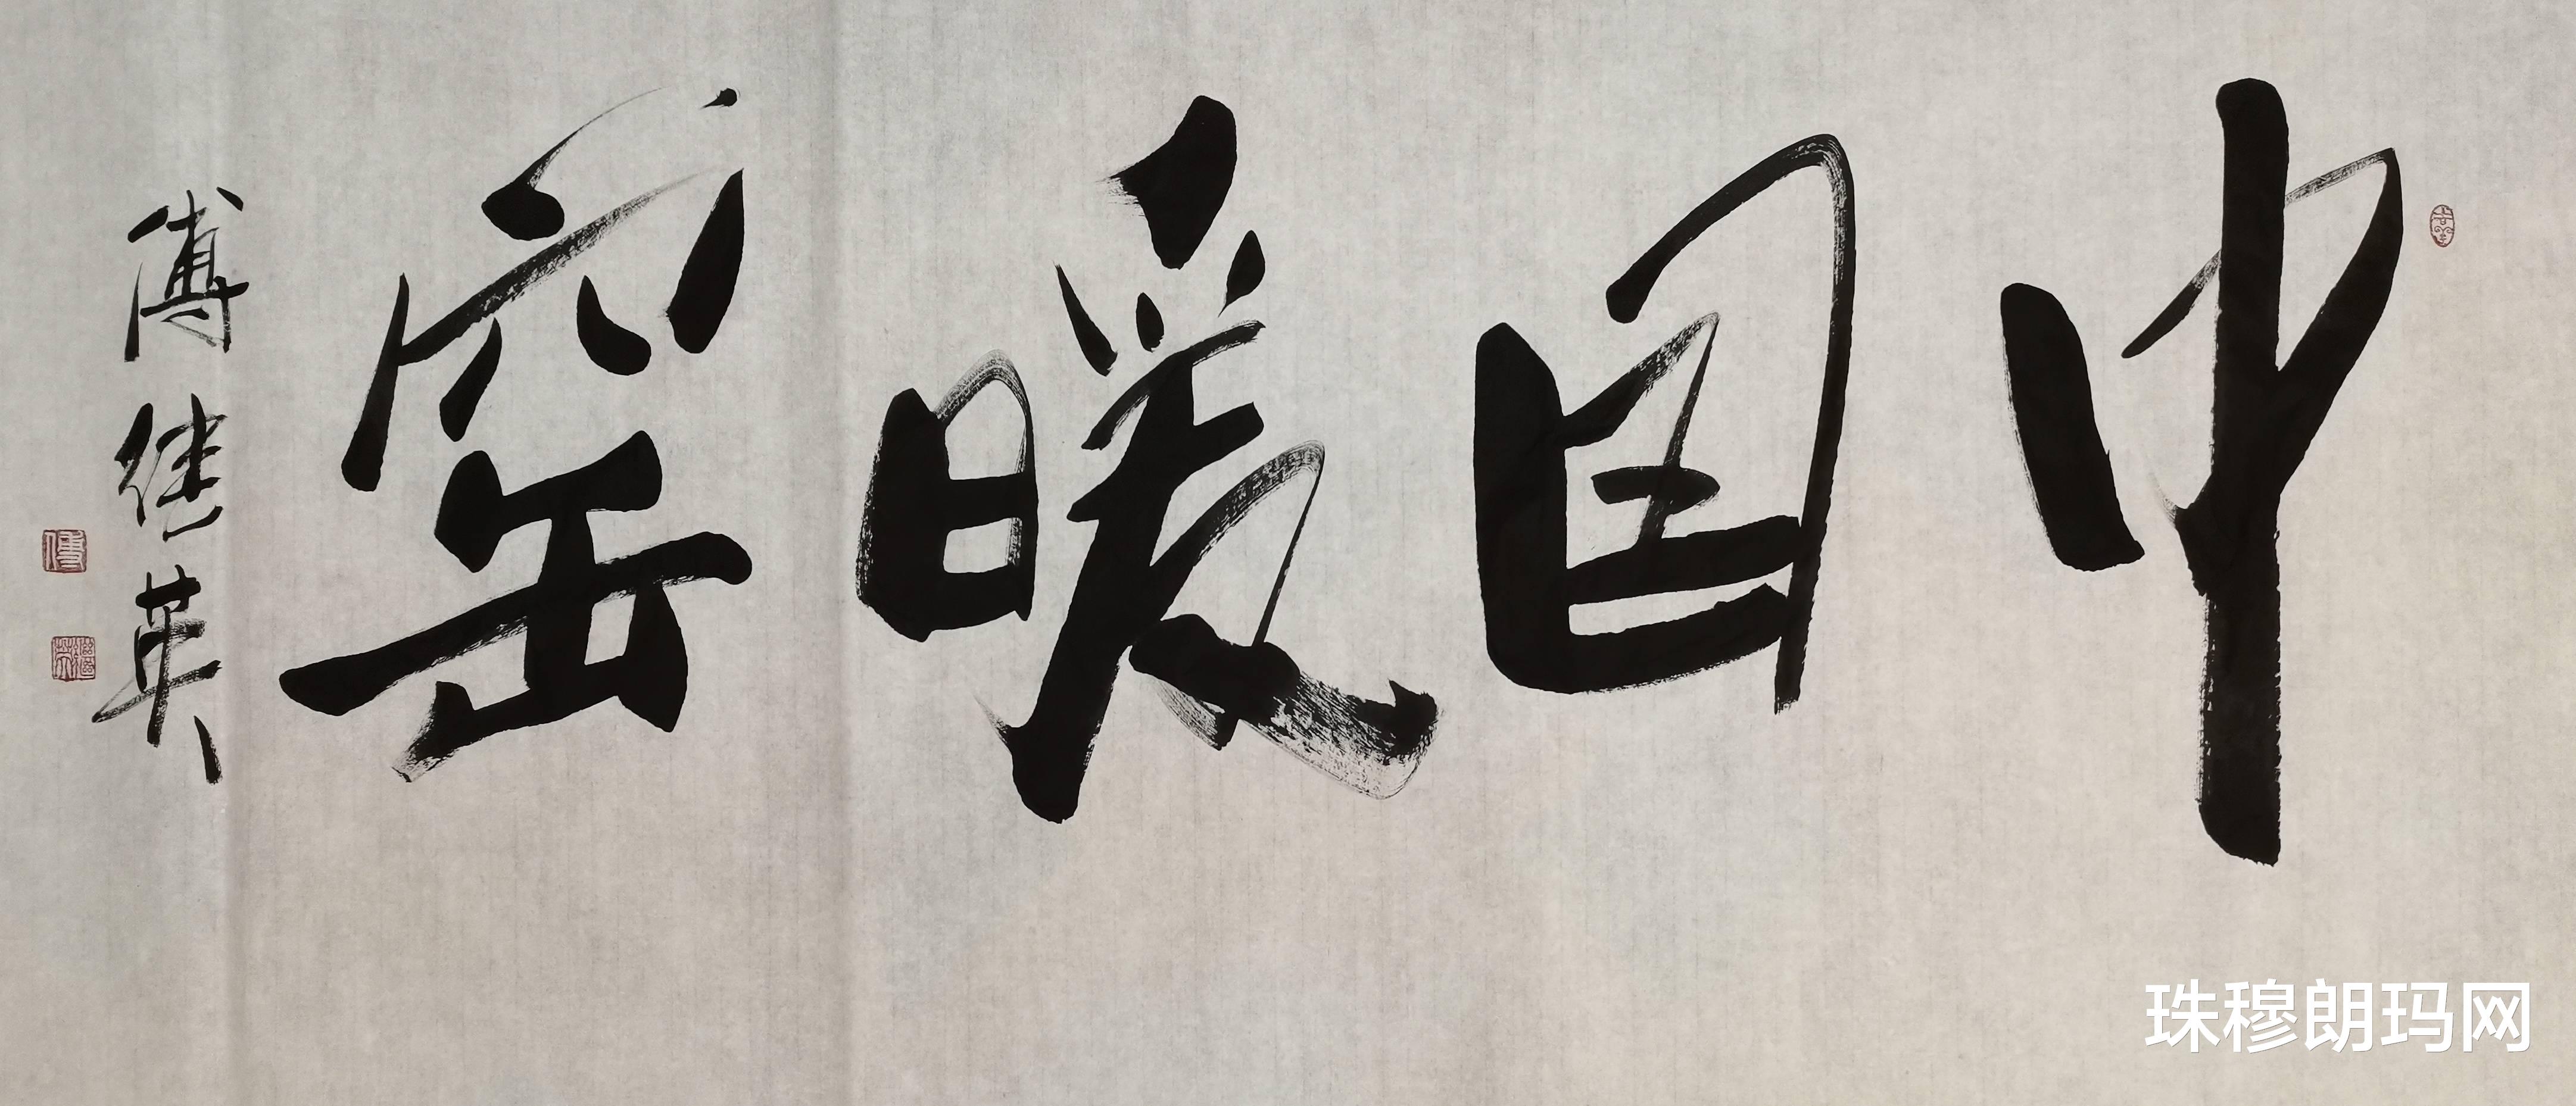 中国暖窑
傅继英
傅
珠穆朗玛网